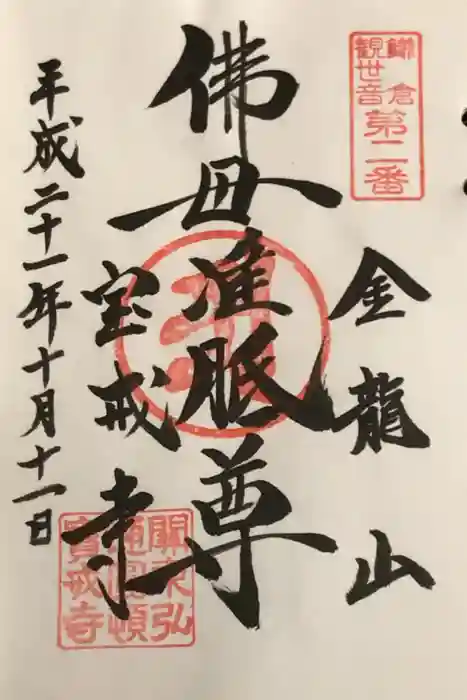 鎌倉
観世音
第二番
金龍山
佛母准胝尊
宝戒寺
平成二十一年十月十一日
關東弘
通圓頓
寳戒寺